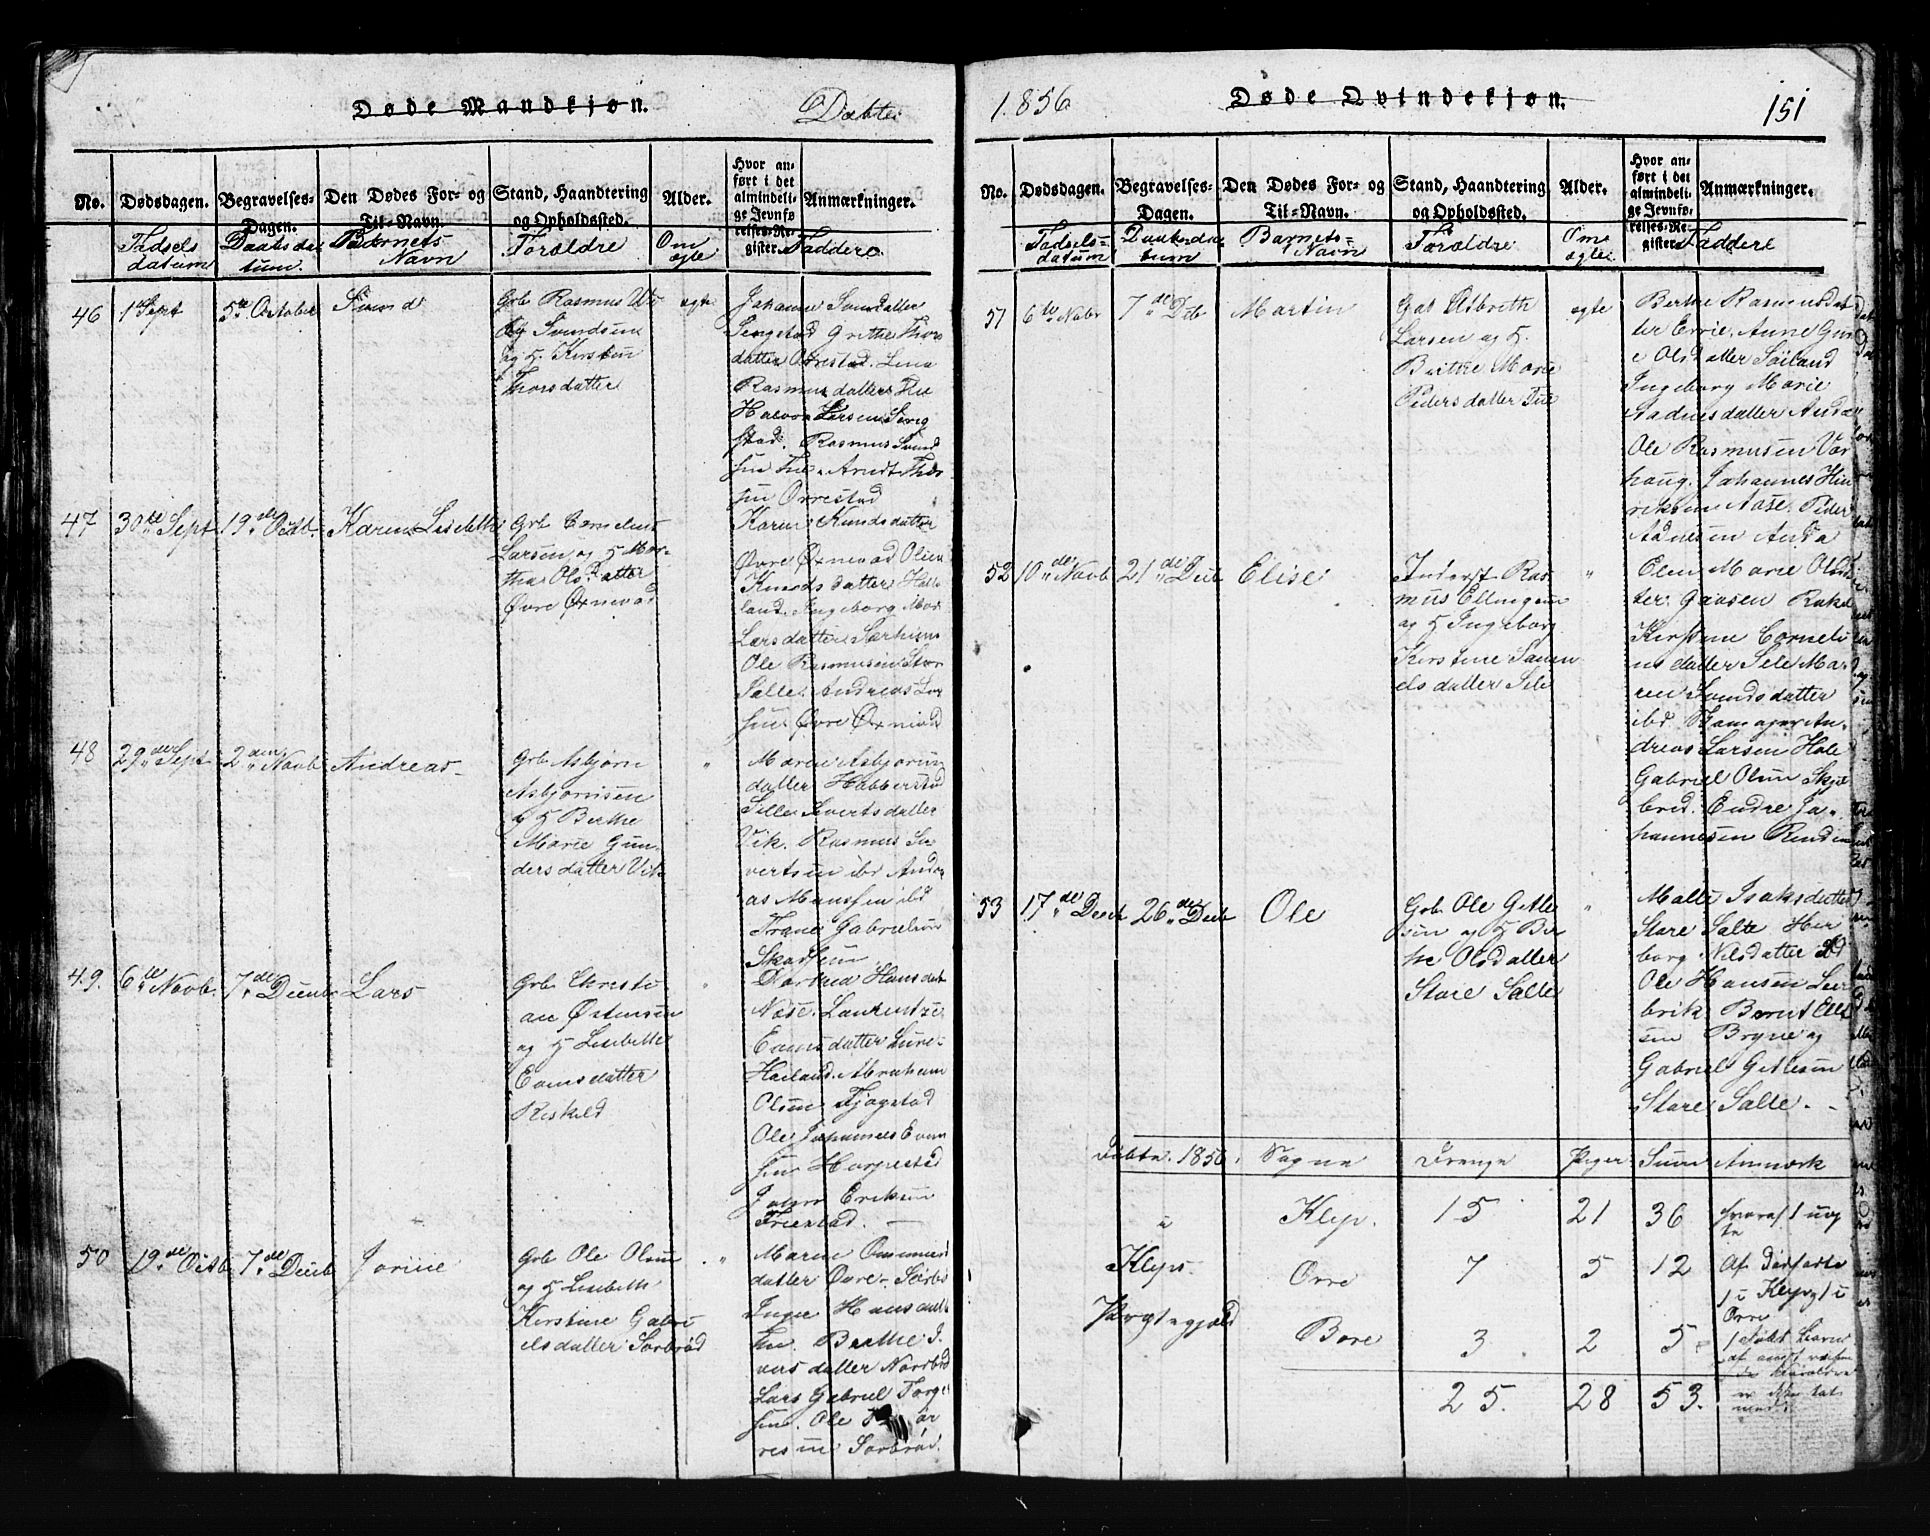 Døde Mandkjøn.
Døbte
No.
Dødsdagen.
Begravelses-
Dagen.
Den Dødes For- og
Til-Navn.
Stand, Haandtering
og Opholdssted.
Alder.
Hvor an-
ført i det
almindeli-
ge Jevnfø-
relses-Re-
gister.
Anmærkninger.
Fødsels
datum
Daabsda
tum.
Barnets
Navn
Forældre
Om
ægte
Faddere
46
1ste Sept
5te October
Svend
Grb Rasmus
Svendsen
og H. Kirsten
Thorsdatter
ægte
Johanne Svendsdatter
Grethe Thors
datter Orrestad. Lena
Rasmusdatter Tu
Halvor Larsen
stad. Rasmus Svend
sen Tu. Arndt Thor
sen Orrestad
47
30te Sept
19de Octb.
Karen Lisebeth
Grb Cornelius
Larsen og H Mar-
tha Olsdatter
Øvre Øxnevad
Karen Knudsdatter
Øvre Øxnevad Olien
Knudsdatter Hau
land. Ingeborg Mar
Larsdatter
Ole Rasmusen Stor
Salte. Andreas Lar
sen Øvre Øxnevad
48
29de Sept
2den Novb
Andreas
Grb Asbjørn
Asbjørnsen
og H Berthe
Marie Gun-
dersdatter Vik
"
Maren Asbjørns
datter Haabberstad
Sille Sivertsdatter
Vik. Rasmus Si
vertsen ibd Andre
as Monssen ibd
Trane Gabrielsen
Skadsem
49.
6te Novb.
7de Decmbr
Lars
Grb Christi
an Østensen
og H Lisebeth
Evensdatter
Reskeld
"
Dorthea Hansdat
Næse. Laurentze
Evensdatter Lure-
Hailand. Abraham
Olsen Tjøgstad
Ole Johannes Even
sen Horpestad
Johan Eriksen
Friestad.
50
19de Octb
7de Decb
Jorine
Grb Ole Olsen
og H Lisebeth
Kirstine Gabri
elsdatter Sørbrød
"
Maren Ommund
datter Øvre Sørbø
Inger Hansdatt
Tu. Berthe I
versdatter Nordbrød
Lars Gabriel Torge
sen. Ole
resen Sørbrød.
1856
Døde Qvindekjøn.
151
No.
Dødsdagen.
Begravelses-
Dagen.
Den Dødes For- og
Til-Navn.
Stand, Haandtering
og Opholdssted.
Alder.
Hvor an-
ført i det
almindeli-
ge Jevnfø-
relses-Re-
gister.
Anmærkninger.
Fødsels-
datum
Daabsda
tum
Barnets
Navn
Forældre
Om
ægte
Faddere
51
6te Novbr
7de Dcb
Martin
Grb Elbreth
Larsen og H.
Berthe Marie
Pedersdatter Tu
ægte
Berthe Rasmusdat
ter Errie. Anne Gur
i Olsdatter Søiland
Ingeborg Marie
Aadnesdatter Anda
Ole Rasmusen Var
haug. Johannes Hen
riksen Aase. Peder
Adnesen Anda
52
10de Novb
21de Decb
Elise
Inderst Ras
mus Ellingsen
og H Ingeborg
Kirstine Samu
elsdatter Sele
"
Elen Marie Olsdat
ter Gausen Rakel
Kirstine Corneli
usdatter Sele Ma-
ren Svendsdatter
ibd. An-
dreas Larsen Hole
Gabriel Olsen Skjæ
bred. Endre Jo-
hannesen
53
17de Decb
26de Decb
Ole
Grb Ole Getle
sen og H Ber
the Olsdatter
Store Salte
"
Malli Isaksdatter
Store Salte Her
borg Nilsdatter ibd
Ole Hansen Leer
brik. Bernt Ells
sen Bryne og
Gabriel Getlesen
Store Salte.
Døbte 1856.
Sogne
Drenge
Piger
Sum
Anmærk
i
Klep.
15
21
36
hvoraf 1 uæg
te
Klep.
Orre
7
5
12
Af Dødfødte
1 i Klep og 1 i
Orre
Præstegjæld
Bore
3
2
5
25.
28
53.